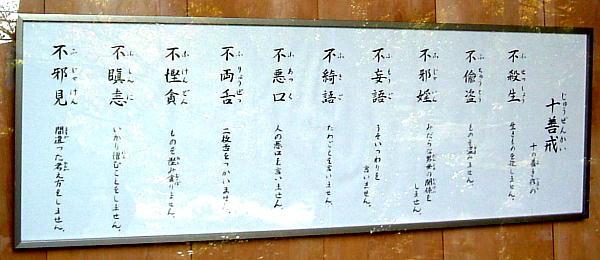 じゅうぜんかい
十善戒
ふせっしょう
不殺生
生きものを殺しません。
ふちゅうとう
不偸盗
ものを盗みません。
ふじゃいん
不邪婬
みだらな男女の関係を
しません。
ふもうご
不妄語
うそいつわりを
言いません。
ふきご
不綺語
たわごとを言いません。
ふあっく
不悪口
人の悪口を言いません。
ふりょうぜつ
不両舌
二枚舌をつかいません。
ふけんどん
不慳貪
ものを慳み貪りません。
ふしんに
不瞋恚
いかり憎むことをしません。
ふじゃけん
不邪見
間違った考え方をしません。